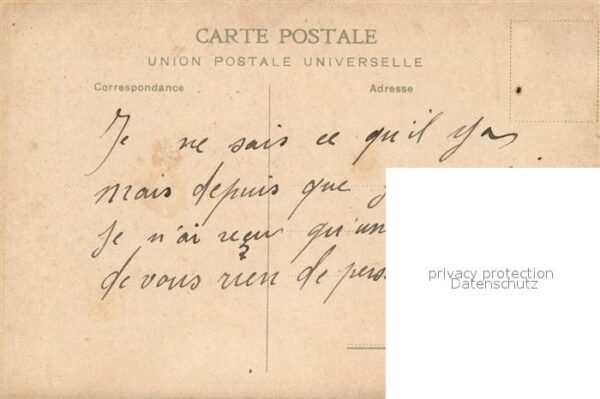 CARTE POSTALE
UNION POSTALE UNIVERSELLE
Correspondance
Adresse
Je ne sais ce qu'il y a
mais depuis que
Je n'ai reçu qu'un
?
de vous rien de pers
privacy protection
Datenschutz